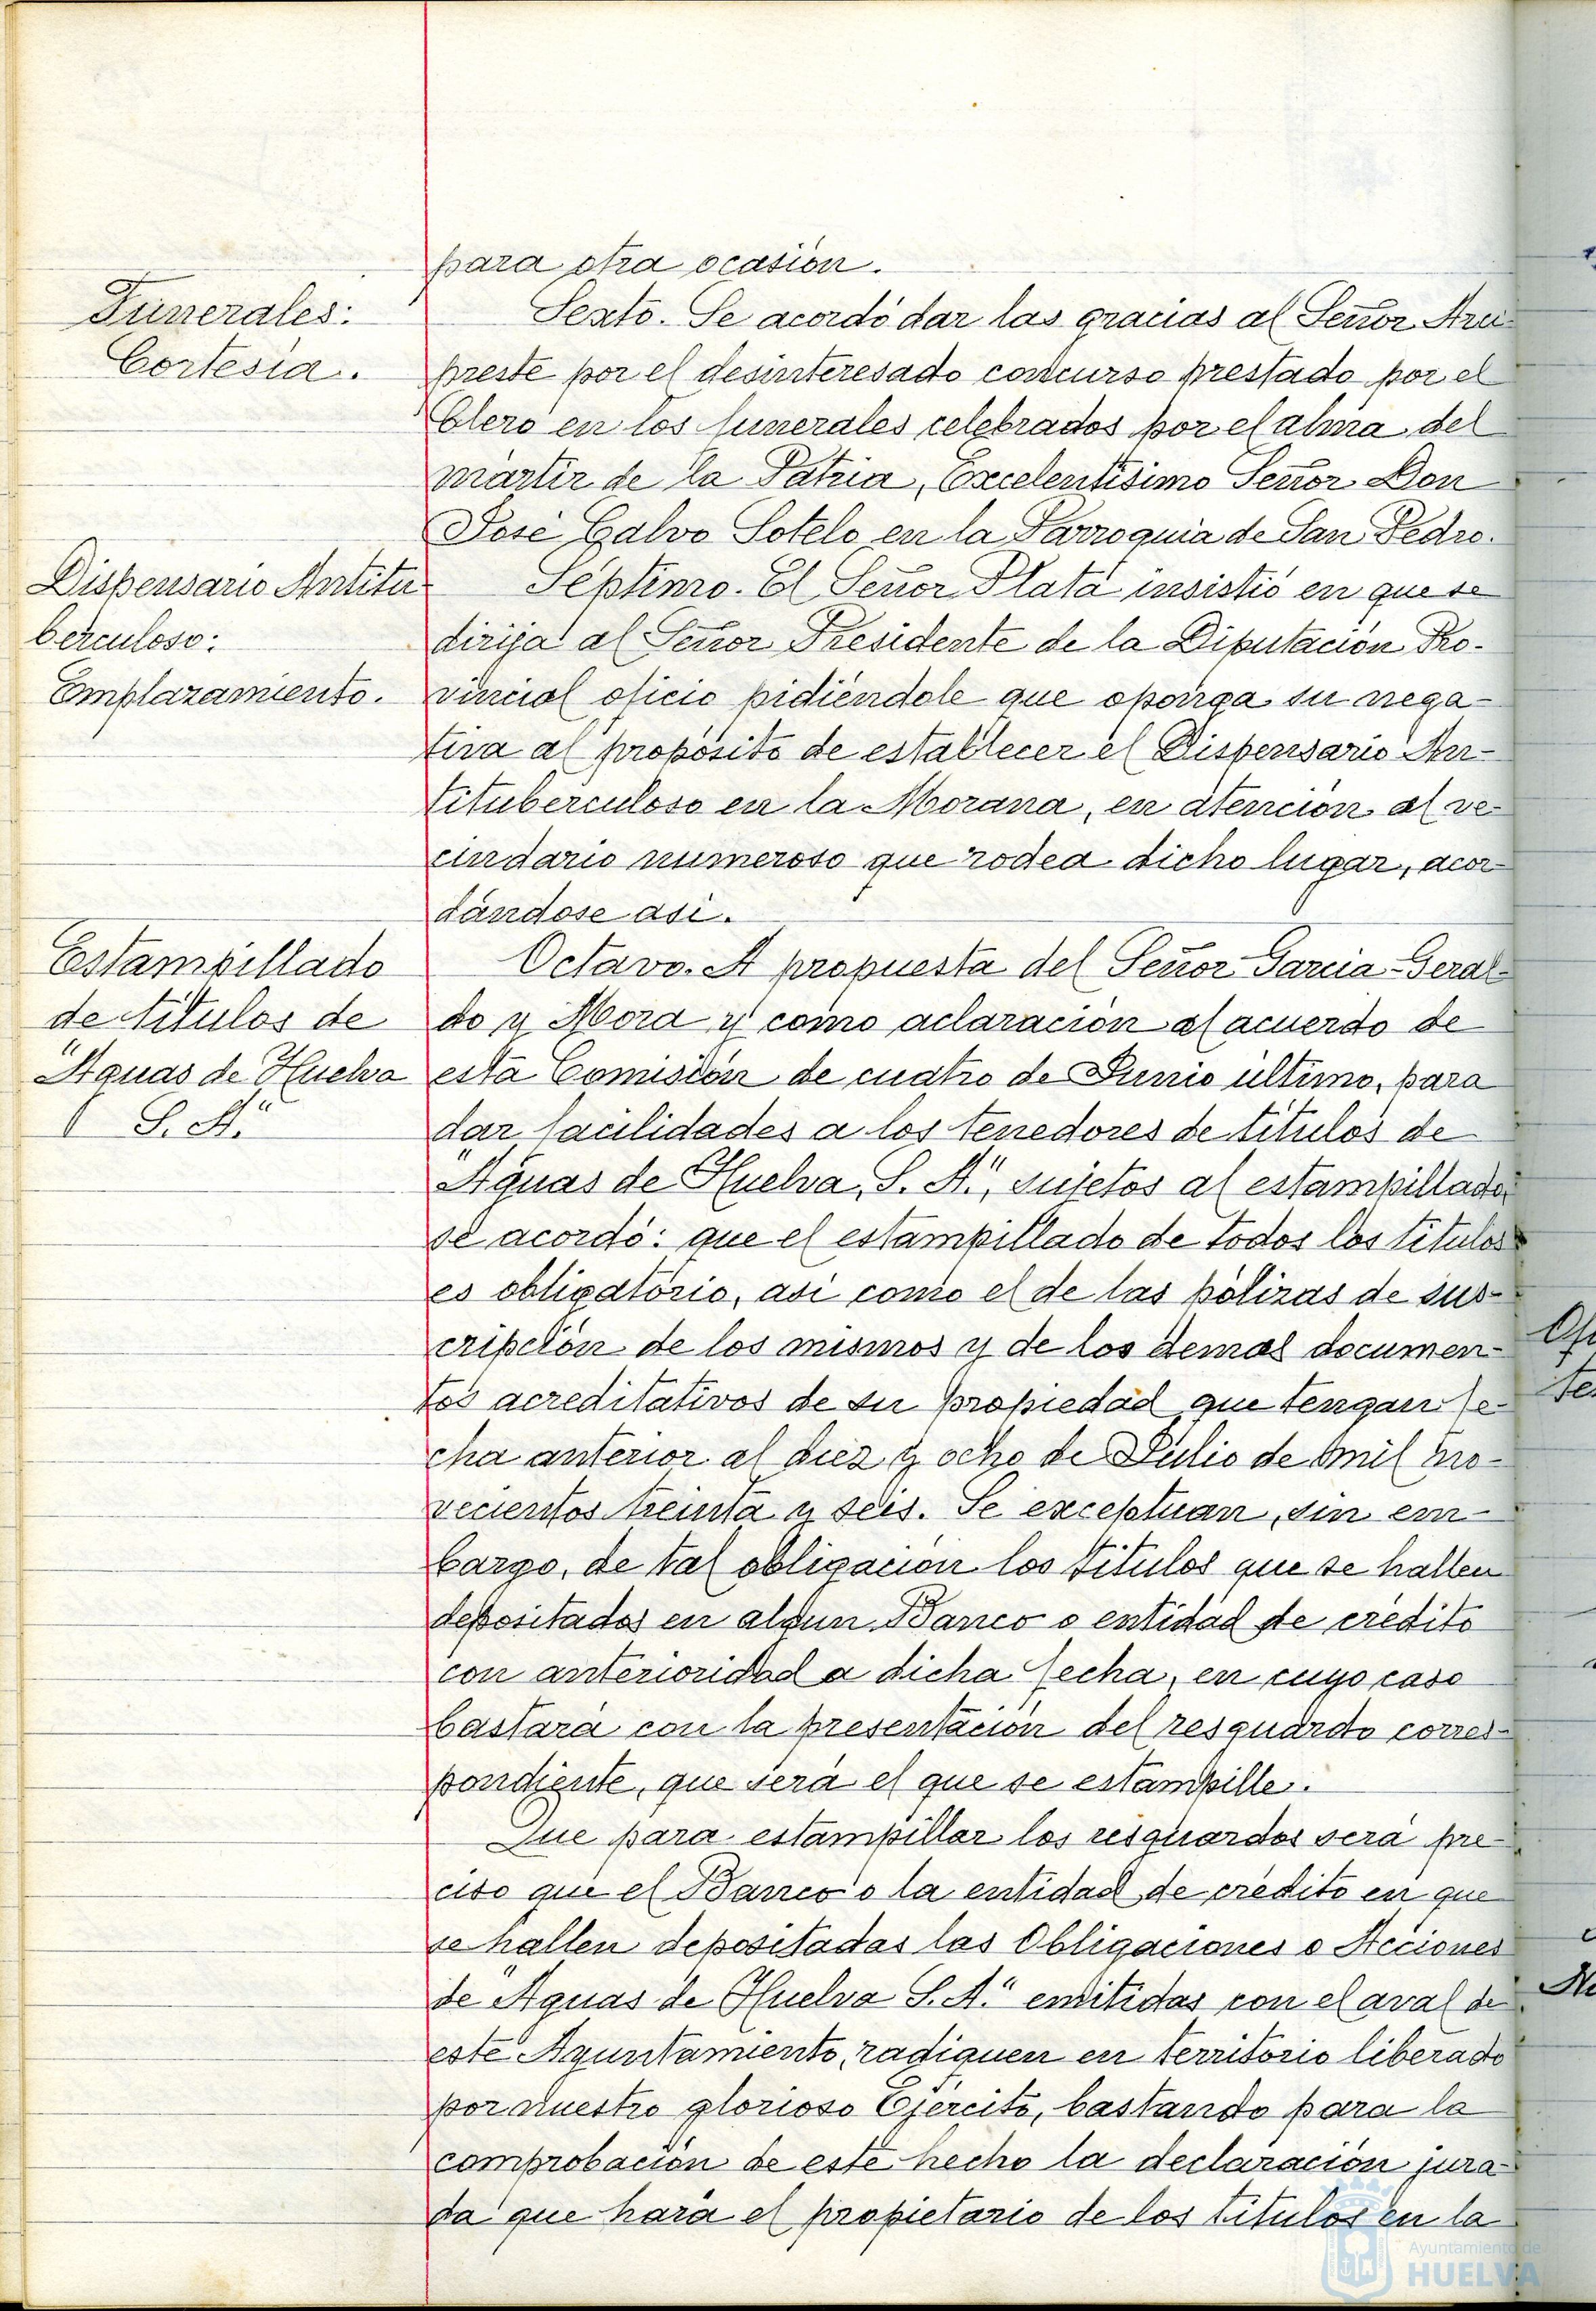 para otra ocasión.
Funerales:
Cortesía.
Sexto. Se acordó dar las gracias al Señor Arci-
preste por el desinteresado concurso prestado por el
Clero en los funerales celebrados por el alma del
mártir de la Patria, Excelentísimo Señor Don
José Calvo Sotelo en la Parroquia de San Pedro.
Dispensario Antitu-
berculoso:
Emplazamiento.
Séptimo. El Señor Plata insistió en que se
dirija al Señor Presidente de la Diputación Pro-
vincial oficio pidiéndole que oponga su nega-
tiva al propósito de establecer el Dispensario An-
tituberculoso en la Morana, en atención al ve-
cindario numeroso que rodea dicho lugar, acor-
dándose así.
Estampillado
de títulos de
"Aguas de Huelva
S. A."
Octavo. A propuesta del Señor García-Geral-
do y Mora y como aclaración al acuerdo de
esta Comisión de cuatro de Junio último, para
dar facilidades a los tenedores de títulos de
"Aguas de Huelva, S. A.", sujetos al estampillado,
se acordó: que el estampillado de todos los títulos
es obligatorio, así como el de las pólizas de sus-
cripción de los mismos y de los demás documen-
tos acreditativos de su propiedad que tengan fe-
cha anterior al diez y ocho de Julio de mil no-
vecientos treinta y seis. Se exceptúan, sin em-
bargo, de tal obligación los títulos que se hallen
depositados en algún Banco o entidad de crédito
con anterioridad a dicha fecha, en cuyo caso
bastará con la presentación del resguardo corres-
pondiente, que será el que se estampille.
Que para estampillar los resguardos será pre-
ciso que el Banco o la entidad de crédito en que
se hallen depositadas las Obligaciones o Acciones
de "Aguas de Huelva S. A." emitidas con el aval de
este Ayuntamiento, radiquen en territorio liberado
por nuestro glorioso Ejército, bastando para la
comprobación de este hecho la declaración jura-
da que hará el propietario de los títulos en la
Ayuntamiento de
HUELVA